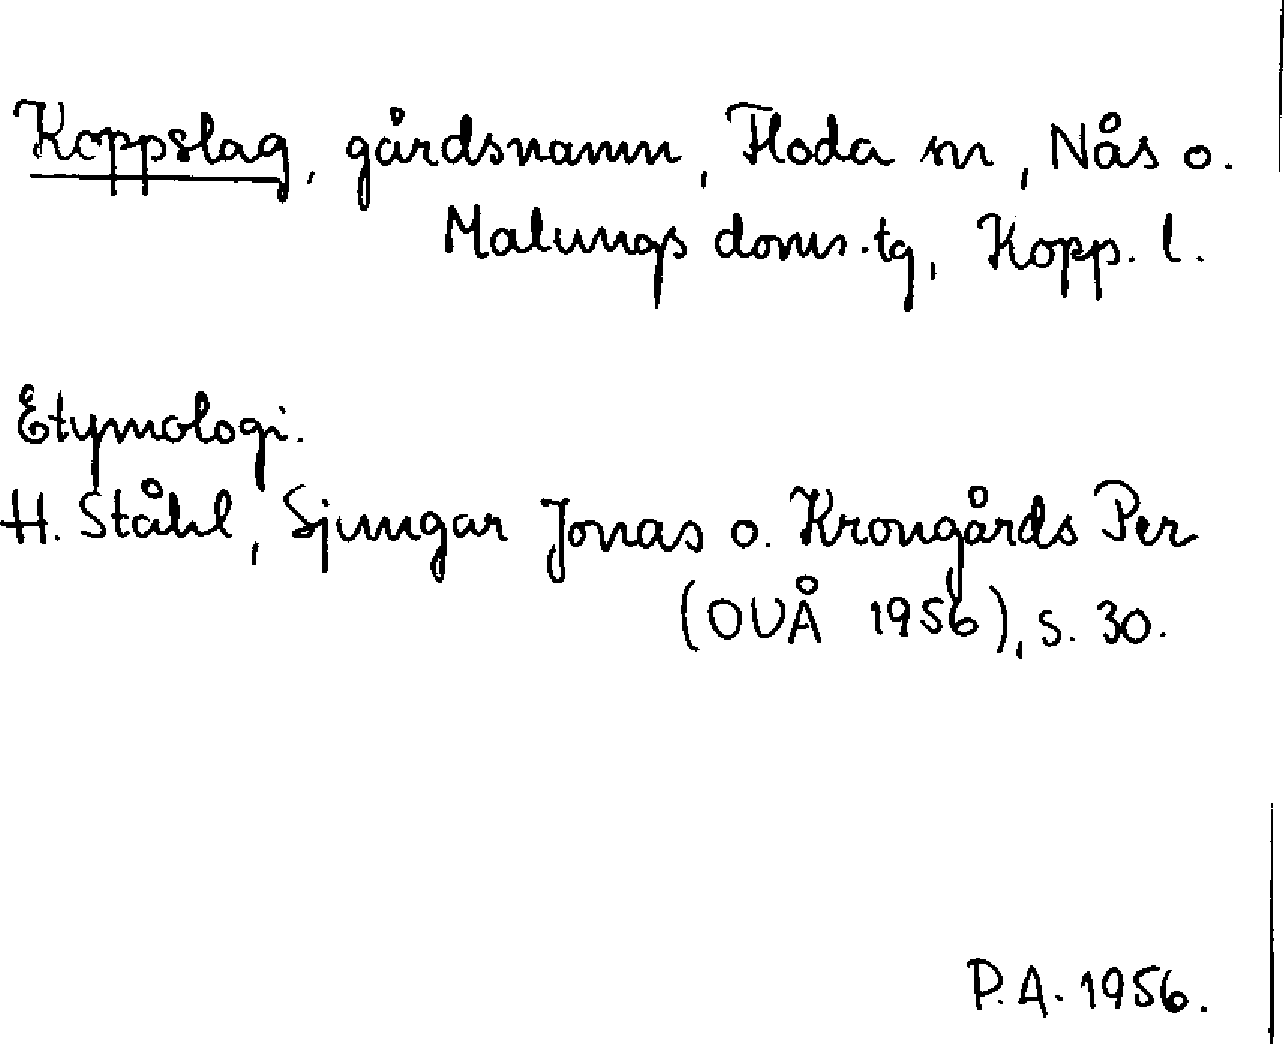 Koppslag, gårdsnamn, Floda sn, Nås o.
Malungs doms.tg, Kopp. l.
Etymologi.
H. Ståhl, Sjungar Jonas o. Krongårds Per
(OUÅ 1956), s. 30.
P.A. 1956.